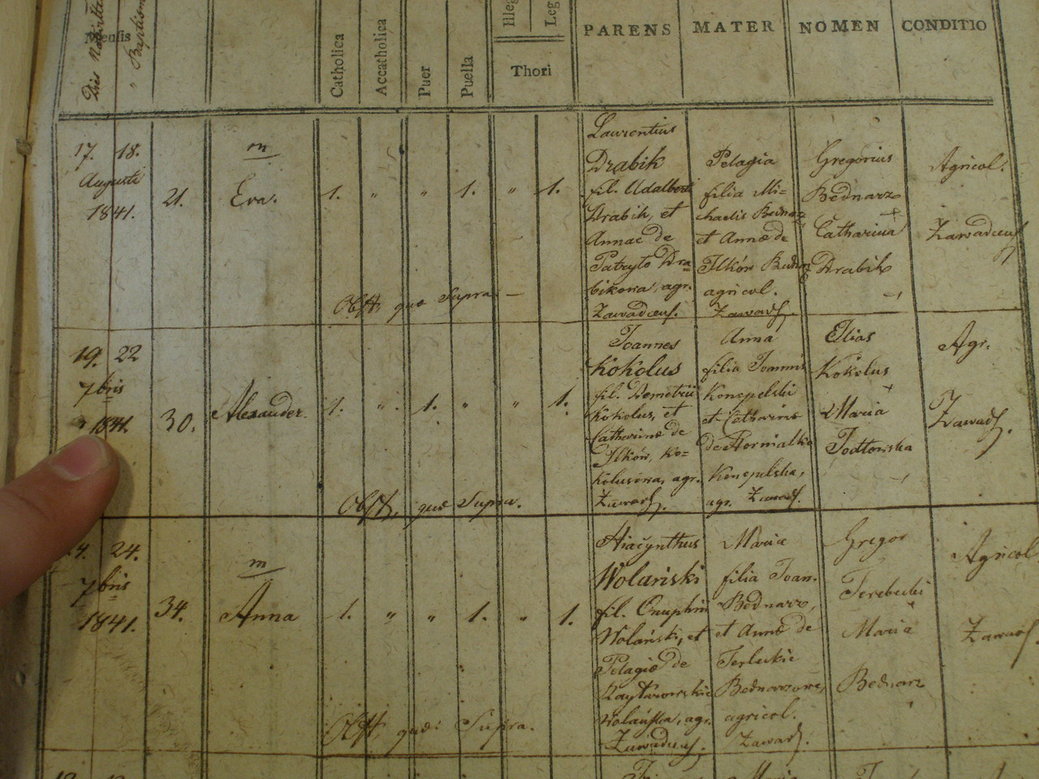 Mensis
Dies Nativitatis
" Baptism
Catholica
Accatholica
Puer
Puella
Illeg
Leg
Thori
PARENS MATER NOMEN CONDITIO
17. 18.
Augusti
1841.
21.
m
Eva.
1. " " 1. " 1.
Laurentius
Drabik
fil. Adalberti
Drabik, et
Annae de
Patryto Dra=
bikowa, agr.
Zawadcens.
Pelagia
filia Mi-
chaelis Bednarz
et Annae de
Ilków Bednarz
agricol.
Zawads.
Gregorius
Bednarz
Catharina
Drabik
Agricol.
Zawadcens
Obst. quae Supra
19. 22
7bris
1841.
30.
Alexander.
1. " 1. " " 1.
Joannes
Kokolus
fil. Demetrii
Kokolus, et
Catharinae de
Ilków, Ko=
kolusowa, agr.
Zawads.
Anna
filia Joannis
Konopelski
et Catharinae
de Hornialke
Konopelska,
agr. Zawads.
Elias
Kokolus
Maria
Podtowska
Agr.
Zawads.
Obst, quae Supra.
24.
7bris
1841.
34.
m
Anna
1. " " 1. " 1.
Hiacynthus
Wolański
fil. Onuphrii
Wolański, et
Pelagiae de
Wolańska, agr.
Zawadcens.
Maria
filia Joan.
Bednarz,
et Annae de
Terlecki
Bednarzowa,
agricol.
Zawads.
Gregor
Terebecki
Maria
Bednarz
Agricol
Zawads.
Obst, quae Supra.
Maria